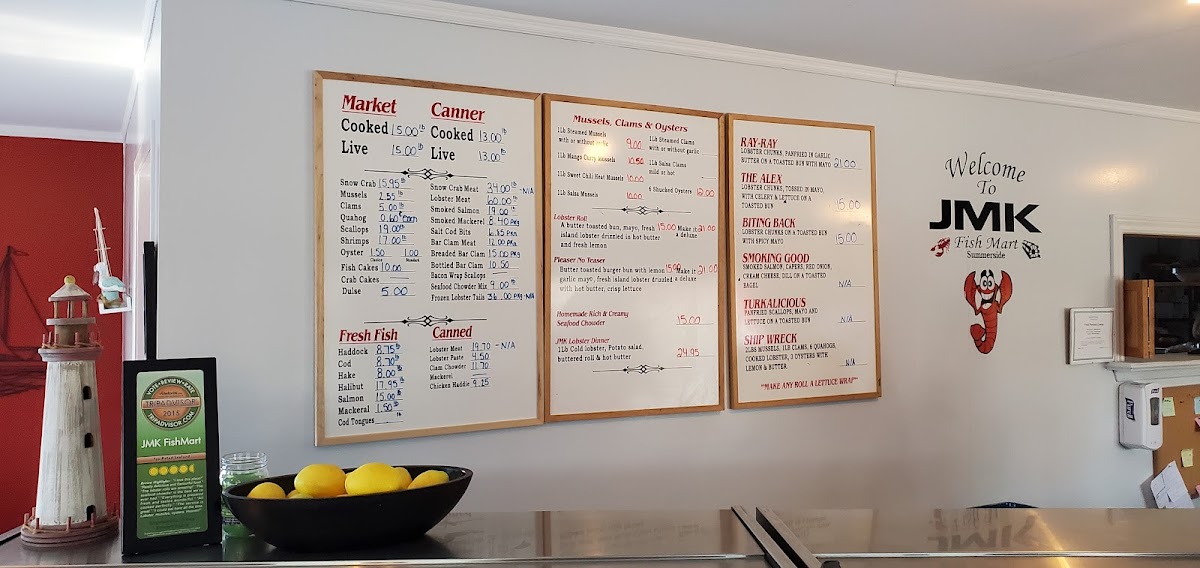 Market
Cooked 15.00 lb
Live 15.00 lb
Canner
Cooked 13.00 lb
Live 13.00 lb
Snow Crab 15.95 lb
Mussels 2.55 lb
Clams 5.00 lb
Quahog 0.60 Each
Scallops 19.00 lb
Shrimps 17.00 lb
Oyster 1.50 1.00
Choice Standard
Fish Cakes 10.00
Crab Cakes
Dulse 5.00
Snow Crab Meat 34.00 lb -N/A
Lobster Meat 60.00 lb
Smoked Salmon 19.00 lb
Smoked Mackerel 8.40 PKG
Salt Cod Bits 6.85 PKG
Bar Clam Meat 12.00 PKG
Breaded Bar Clam 15.00 PKG
Bottled Bar Clam 10.50
Bacon Wrap Scallops
Seafood Chowder Mix 9.00 lb
Frozen Lobster Tails 36.00 PKG -N/A
Fresh Fish
Haddock 8.75 lb
Cod 8.70 lb
Hake 8.00 lb
Halibut 17.95 lb
Salmon 15.00 lb
Mackeral 1.50 lb
Cod Tongues lb
Canned
Lobster Meat 19.70 -N/A
Lobster Paste 4.50
Clam Chowder 11.70
Mackerel
Chicken Haddie 9.25
Mussels, Clams & Oysters
1Lb Steamed Mussels
with or without garlic 9.00
1Lb Mango Curry Mussels 10.50
1Lb Sweet Chili Heat Mussels 10.00
1Lb Salsa Mussels 10.00
1Lb Steamed Clams
with or without garlic
1Lb Salsa Clams
mild or hot
6 Shucked Oysters 12.00
Lobster Roll
A butter toasted bun, mayo, fresh 15.00 Make it 21.00
island lobster drizzled in hot butter a deluxe
and fresh lemon
Pleaser No Teaser
Butter toasted burger bun with lemon 15.00 Make it 21.00
garlic mayo, fresh island lobster drizzled a deluxe
with hot butter, crisp lettuce
Homemade Rich & Creamy
Seafood Chowder 15.00
JMK Lobster Dinner
1Lb Cold lobster, Potato salad, 24.95
buttered roll & hot butter
RAY-RAY
LOBSTER CHUNKS, PANFRIED IN GARLIC
BUTTER ON A TOASTED BUN WITH MAYO 21.00
THE ALEX
LOBSTER CHUNKS, TOSSED IN MAYO,
WITH CELERY & LETTUCE ON A
TOASTED BUN 15.00
BITING BACK
LOBSTER CHUNKS ON A TOASTED BUN
WITH SPICY MAYO 15.00
SMOKING GOOD
SMOKED SALMON, CAPERS, RED ONION,
CREAM CHEESE, DILL ON A TOASTED
BAGEL N/A
TURKALICIOUS
PANFRIED SCALLOPS, MAYO AND
LETTUCE ON A TOASTED BUN N/A
SHIP WRECK
2LBS MUSSELS, 1LB CLAMS, 4 QUAHOGS,
COOKED LOBSTER, 3 OYSTERS WITH
LEMON & BUTTER. N/A
"MAKE ANY ROLL A LETTUCE WRAP"
Welcome
To
JMK
Fish Mart
Summerside
VOTE•REVIEW•RATE
TRIPADVISOR
2015
TRIPADVISOR.COM
JMK FishMart
PURELL